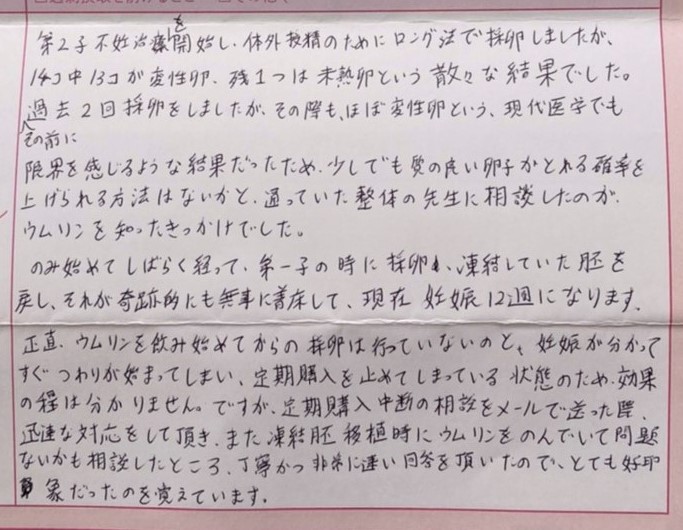 第2子不妊治療を開始し、体外授精のためにロング法で採卵しましたが、
14コ中13コが変性卵、残1つは未熟卵という散々な結果でした。
過去2回採卵をしましたが、その際も、ほぼ変性卵という、現代医学でも
その前に
限界を感じるような結果だったため、少しでも質の良い卵子がとれる確率を
上げられる方法はないかと、通っていた整体の先生に相談したのが、
ウムリンを知ったきっかけでした。
のみ始めてしばらく経って、第一子の時に採卵し、凍結していた胚を
戻し、それが奇跡的にも無事に着床して、現在 妊娠12週になります。
正直、ウムリンを飲み始めてからの採卵は行っていないのと、妊娠が分かって
すぐつわりが始まってしまい、定期購入を止めてしまっている状態のため、効果
の程は分かりません。ですが、定期購入中断の相談をメールで送った際、
迅速な対応をして頂き、また凍結胚移植時にウムリンをのんでいて問題
ないかも相談したところ、丁寧かつ非常に速い回答を頂いたので、とても好印
象だったのを覚えています。